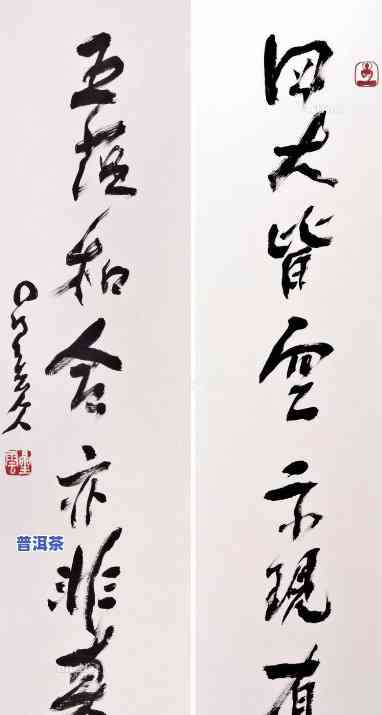 四大皆空示現有
五蘊和合亦非真
普洱茶